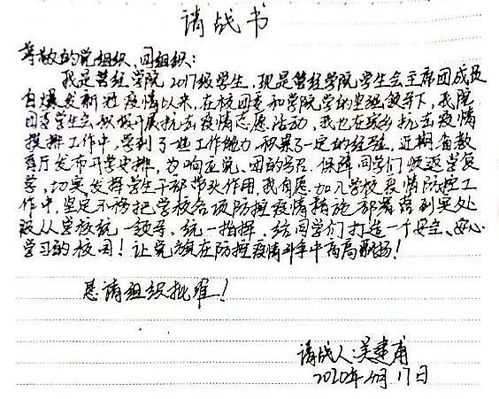 请战书
尊敬的党组织、团组织:
我是管经学院2017级学生,现是管经学院学生会主席团成员
自爆发新冠疫情以来,在校团委和学院党的坚强领导下,我院
团委学生会积极开展抗击疫情志愿活动,我也在家乡抗击疫情
摸排工作中,学到了一些工作能力,积累了一定的经验,近期省教
育厅发布开学安排,为响应党、团的号召,保障同学们顺返学复
学,切实发挥学生干部带头作用,我自愿加入学校疫情防控工
作中,坚定不移把学校各项防控疫情措施部署落到实处
服从学校统一领导,统一指挥,给同学们打造一个安全、安心
学习的校园!让党旗在防控疫情斗争中高高飘扬!
恳请组织批准!
请战人:吴建甫
2020年 月17日